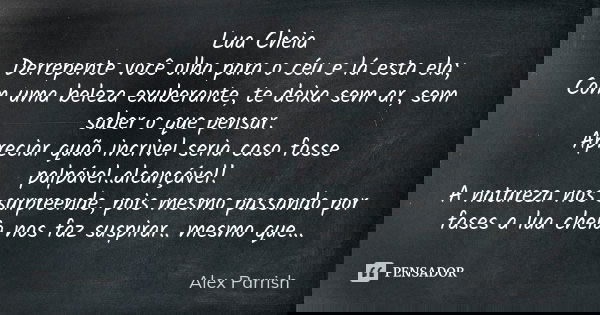 Lua Cheia
Derrepente você olha para o céu e lá esta ela;
Com uma beleza exuberante, te deixa sem ar, sem
saber o que pensar.
Apreciar quão incrivel seria caso fosse
palpável..alcançável!
A natureza nos surpreende, pois mesmo passando por
fases a lua cheia nos faz suspirar.. mesmo que...
Alex Parrish
PENSADOR